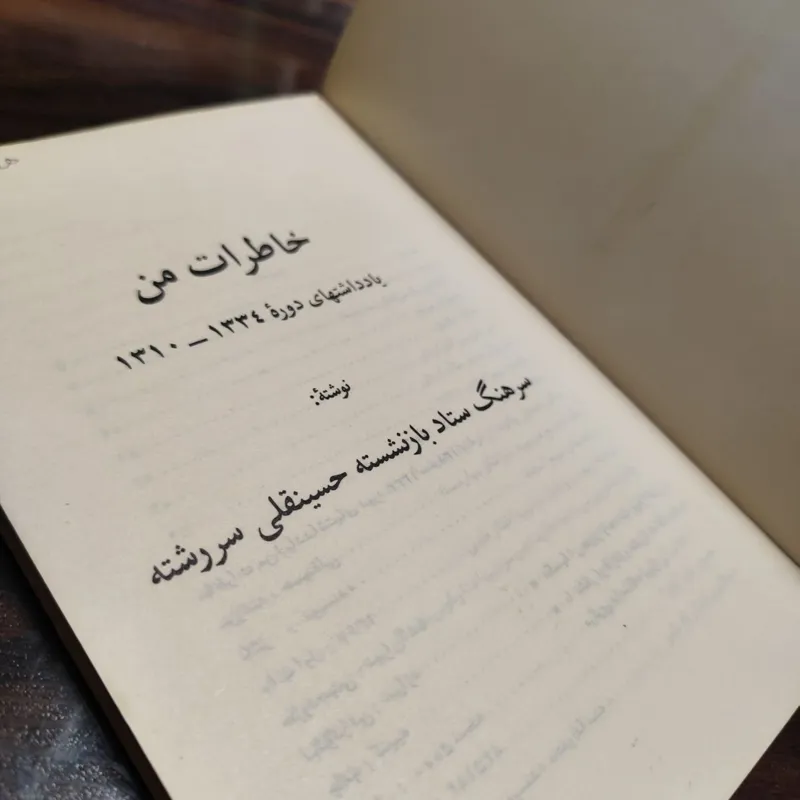 خاطرات من
یادداشتهای دورهٔ ۱۳۳۴ – ۱۳۱۰
نوشتهٔ:
سرهنگ ستاد بازنشسته حسینقلی سررشته